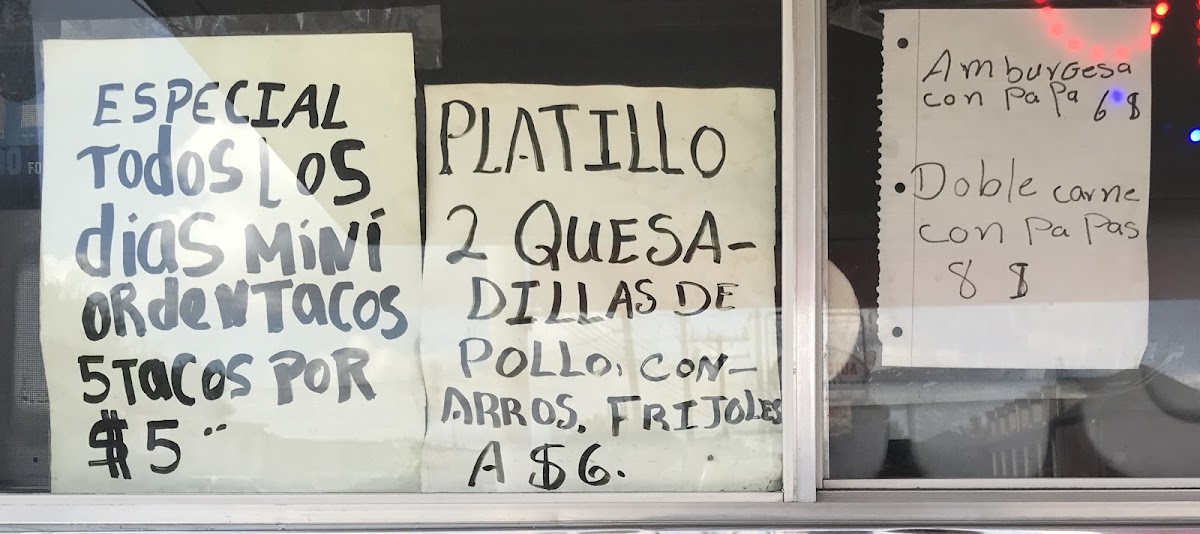 ESPECIAL
TODOS LOS
dias MiNi
ORdeN TACOS
5 TACOS POR
$5
PLATILLO
2 QUESA-
DILLAS DE
POLLO. CON-
ARROS. FRIJOLES
A $6.
Amburgesa
con papa 6$
Doble carne
con papas
8 $